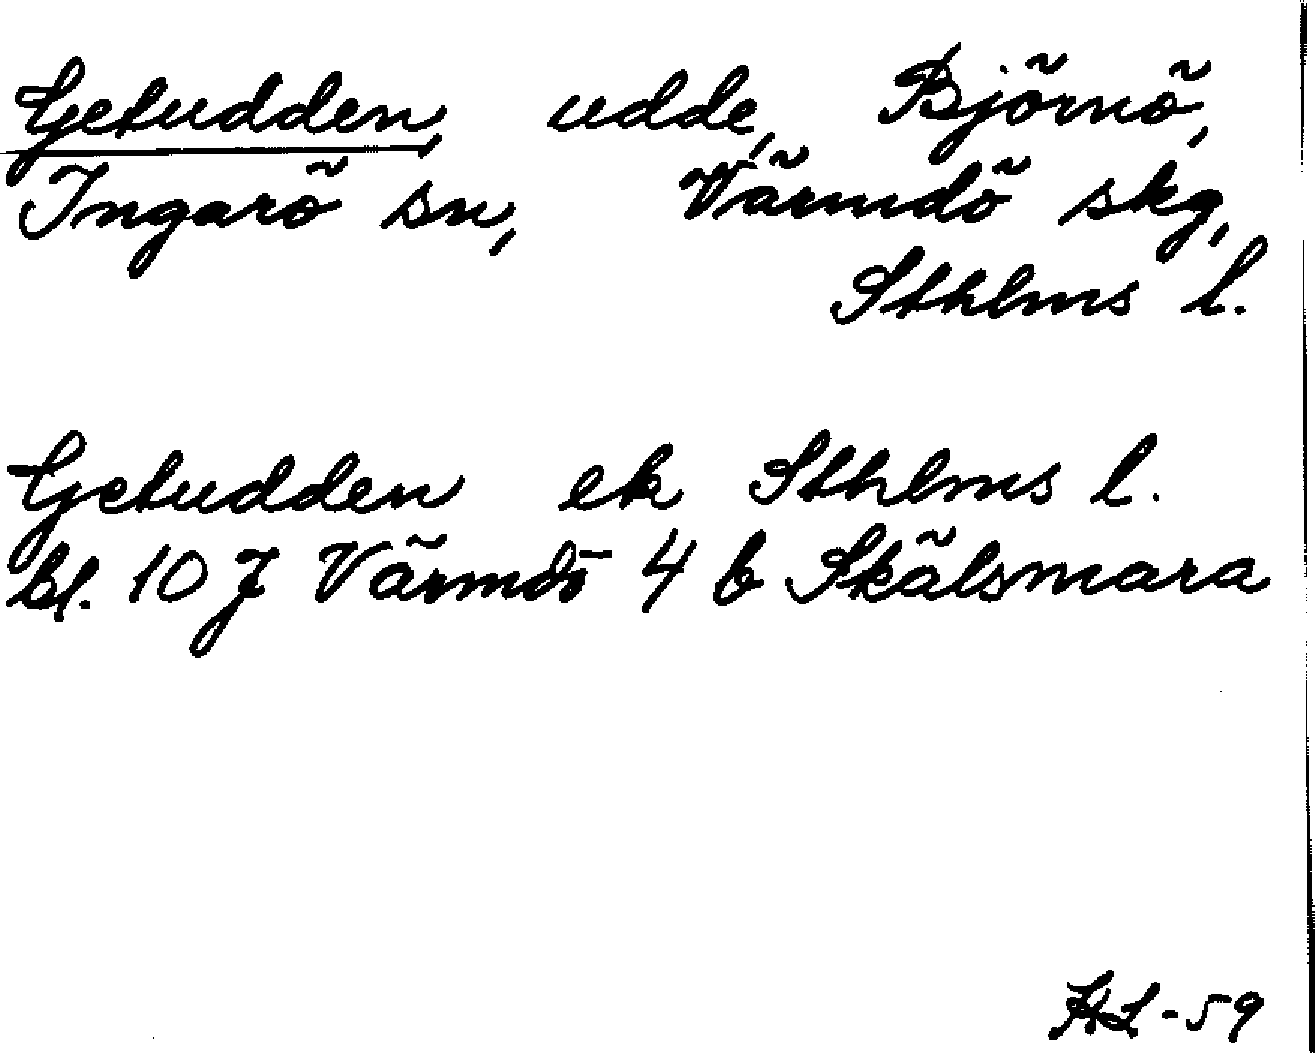 Getudden, udde, Björnö,
Ingarö sn, Värmdö skg,
Sthlms l.
Getudden ek Sthlms l.
bl. 10 J Värmdö 4 b Skälsmara
HL-59